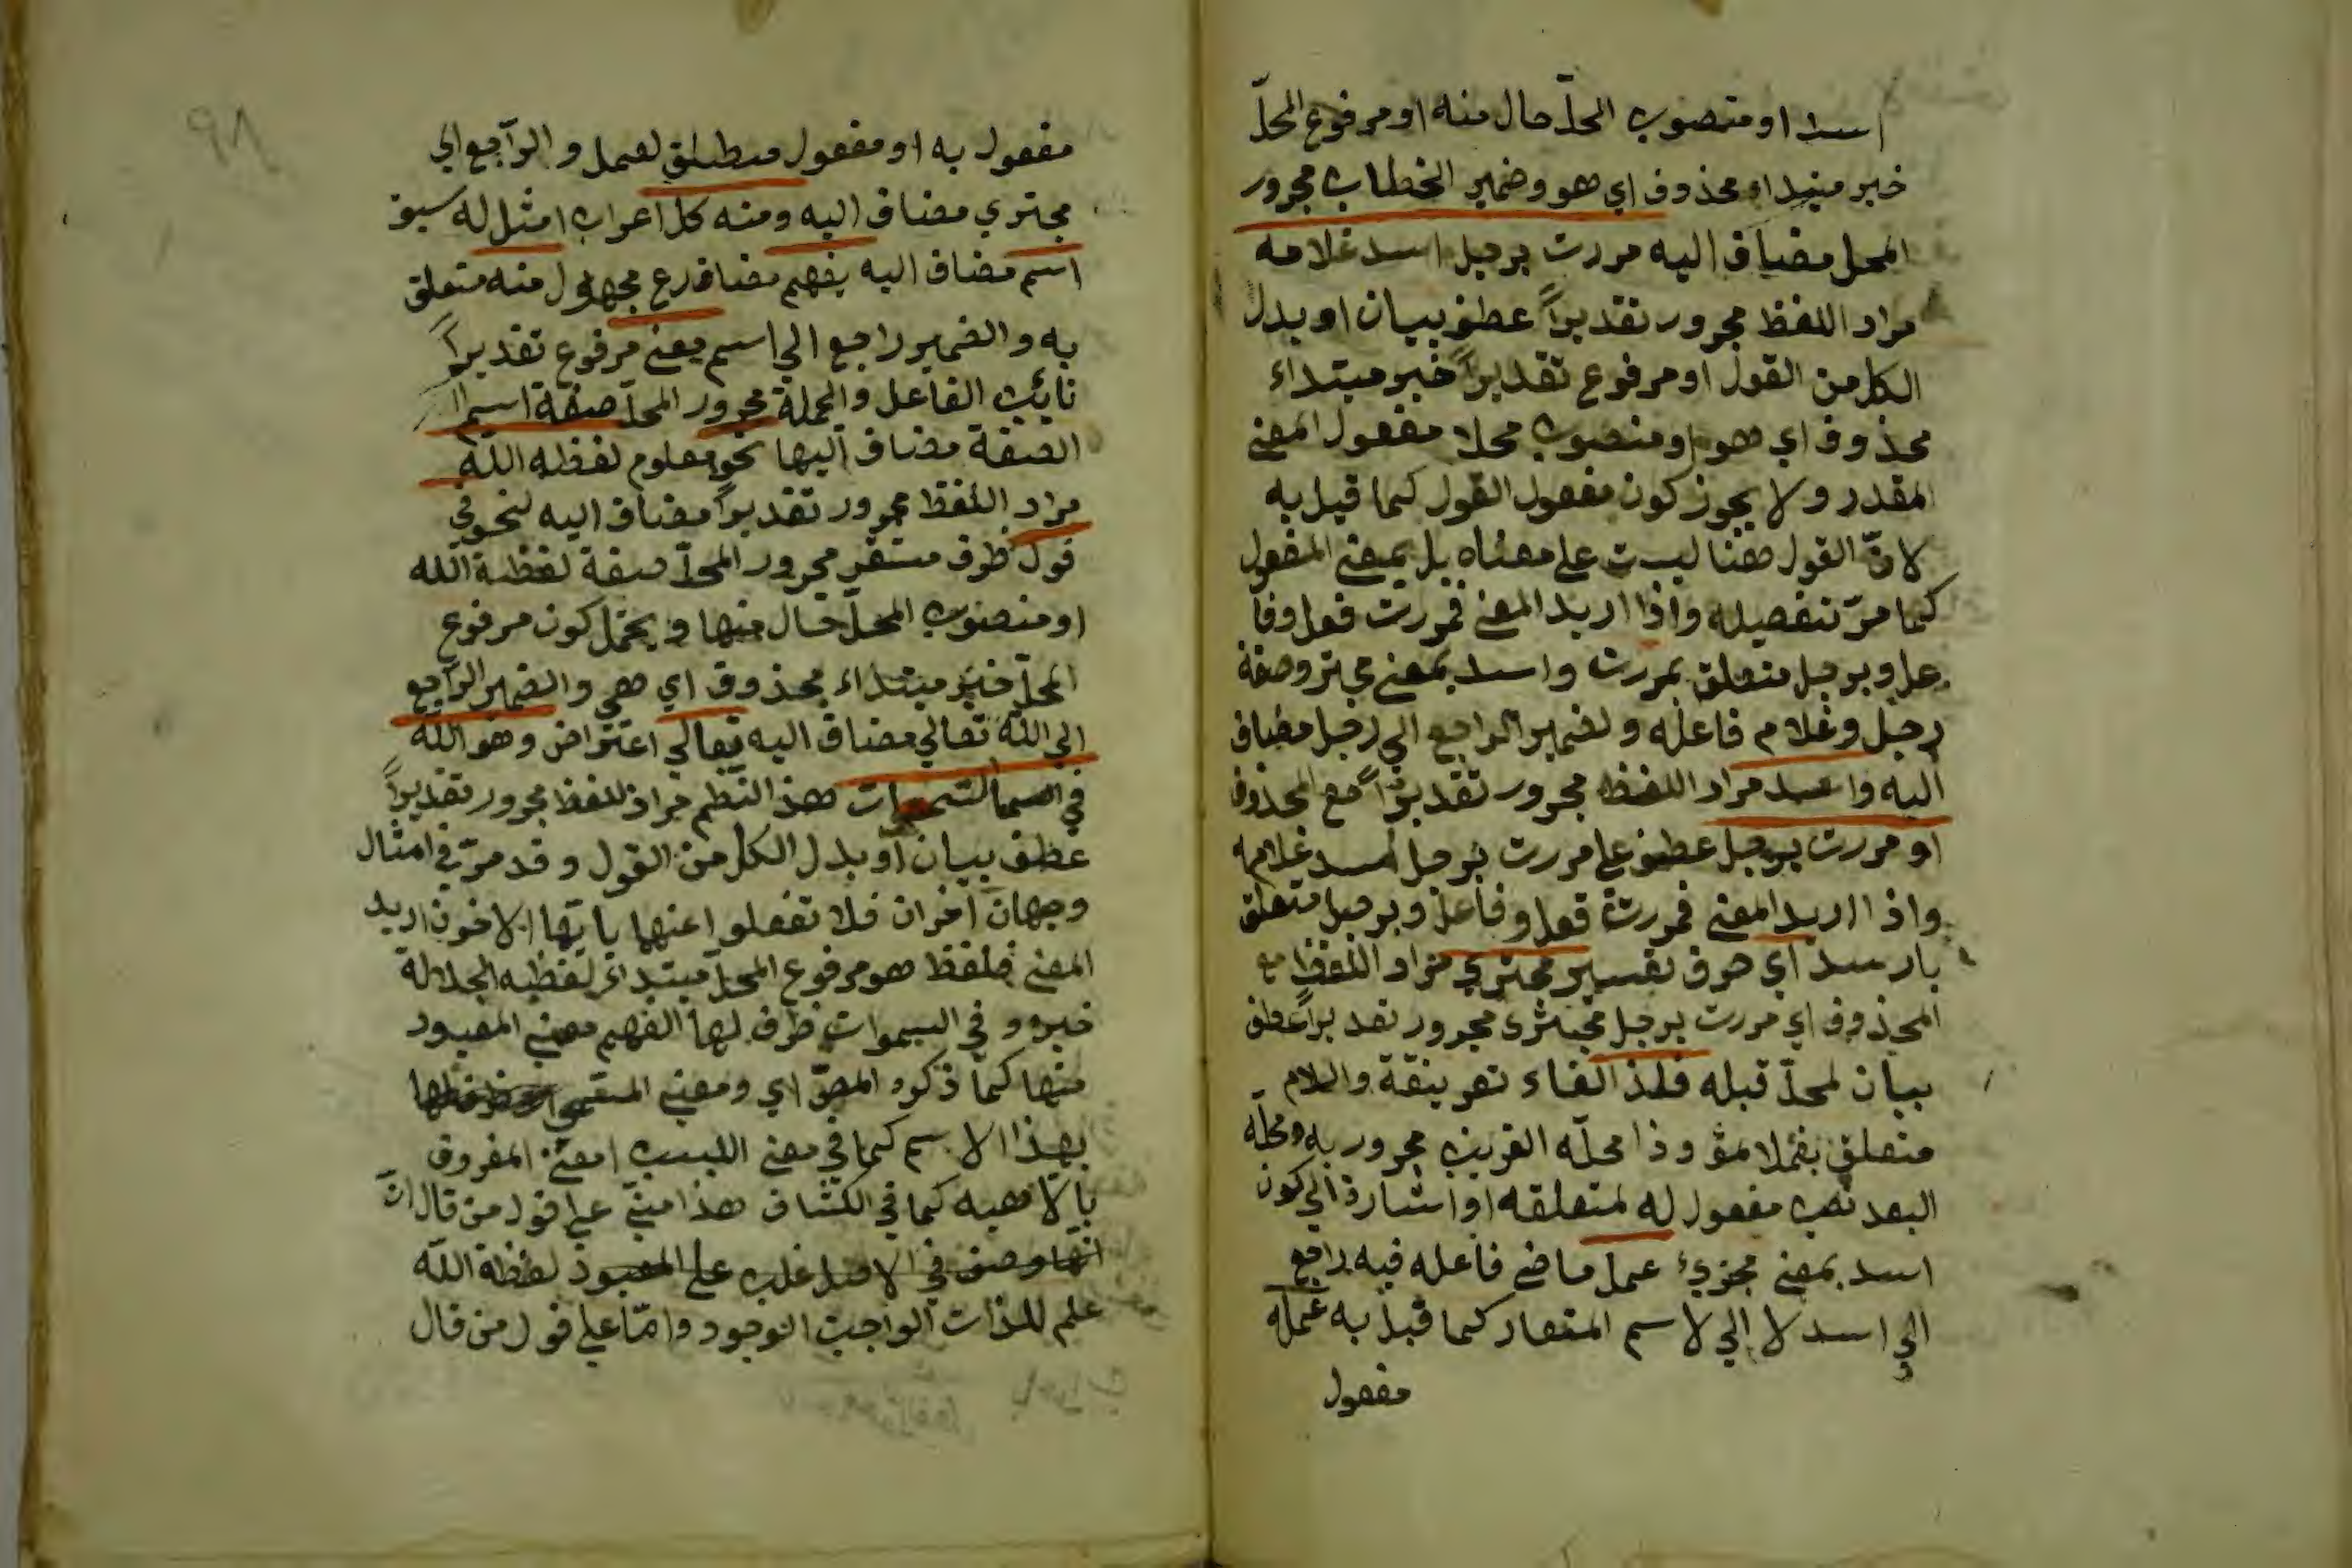 اسد او منصوب المحلّ حال منه او مرفوع المحلّ
خبر مبتداء محذوف اي هو وضمير الخطاب مجرور
المحل مضاف اليه مررت برجل اسد غلامه
مراد اللفظ مجرور تقديراً عطف بيان او بدل
الكل من القول او مرفوع تقديراً خبر مبتداء
محذوف اي هو او منصوب محلا مفعول اعني
المقدر ولا يجوز كون مفعول القول كما قيل به
لانّ القول هنا ليست على معناه بل بمعنى المفعول
كما مرّ تفصيله واذا اريد المعنى فمررت فعل وفا
عل وبرجل متعلق بمررت واسد بمعنى مجتر وصفة
رجل وغلام فاعله ولضمير الراجع الى رجل مضاف
اليه واسد مراد اللفظ مجرور تقديراً مع المحذوف
او مررت برجل عطف على مررت برجل اسد غلامه
واذا اريد المعنى فمررت فعل وفاعل وبرجل متعلق
باسد اي حرف تفسير مجتري مراد اللفظ مع
المحذوف اي مررت برجل مجترى مجرور تقديراً عطف
بيان لمحلّ قبله فلذا الفاء تفريغة واللام
متعلق بفعل وذا محلّه القريب مجرور به ومحلّه
البعد نصب مفعول له لمتعلقه او اشارة الي كون
اسد بمعنى مجتريء عمل ماضي فاعله فيه راجع
الي اسد لا الي لاسم المتعار كما قيل به عمله
مفعول
٩٨
مفعول به او مفعول مطلق لعمل والرّاجع الي
مجتري مضاف اليه ومنه كل اعراب امثل له سبق
اسم مضاف اليه يفهم مضارع مجهول منه متعلق
به والضمير راجع الي اسم معنى مرفوع تقديراً
نائب الفاعل والجملة مجرور المحلّ صفة اسم
الصفة مضاف اليها نحو معلوم لفظه اللّه
مراد اللفظ مجرور تقديراً مضاف اليه لنحو في
قول ظرف مستقر مجرور المحلّ صفة لفظة اللّه
او منصوب المحلّ حال منها ويحتمل كون مرفوع
المحلّ خبر مبتداء محذوف اي هي والضمير الرّاجع
الي اللّه تعالي مضاف اليه تعالي اعتراض وهو اللّه
في السموات هذ النظم مراد للفظ مجرور تقديراً
عطف بيان او بدل الكل من القول وقد مرّ في امثال
وجهان اخران فلا تغفلوا عنهما يا ايّها الاخون اريد
المعنى فلفظ هو مرفوع المحلّ مبتداء لفظه الجلالة
خبره وفي السموات ظرف لها الفهم معنى المعبود
منها كما ذكره المصّ اي ومعنى المسمى
بهذا الاسم كما في مغني اللبيب معنى المعروف
بالالاهيه كما في الكشاف هذا مبنيّ علي قول من قال انّ
انّها وصف في الاصل غلب على المعبود لفظة اللّه
علم للذات الواجب الوجود وامّا على قول من قال